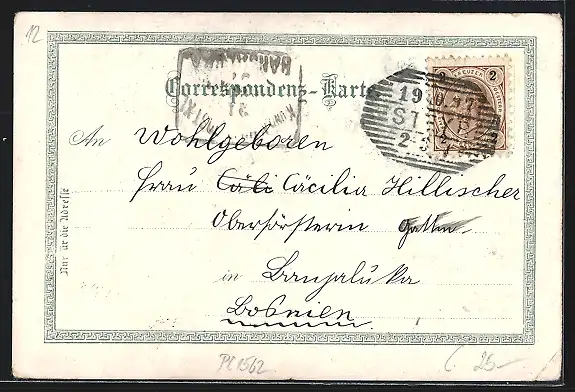 12
Correspondenz-Karte
2 KREUZER 2
19 10 97
STEYR
2-3
An Wohlgeboren
Frau Cäli Cäcilia Hillischer
Oberförsterin Gattin
in Banjaluka
Bosnien
Nur für die Adresse
PL1562
25-